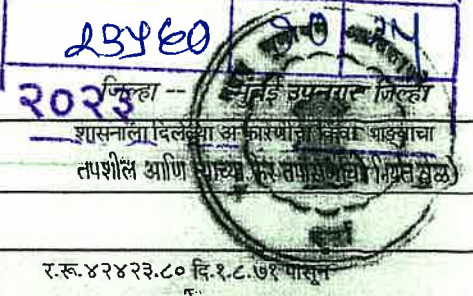 23560 90 24
२०२३
जिल्हा -- मुंबई उपनगर जिल्हा
शासनाला दिलेल्या अकारणीचा किंवा भाड्याचा
तपशील आणि त्याच्या फेर तपासणीची नियत वेळ)
र.रू.४२४२३.८० दि.१.८.७१ पासून